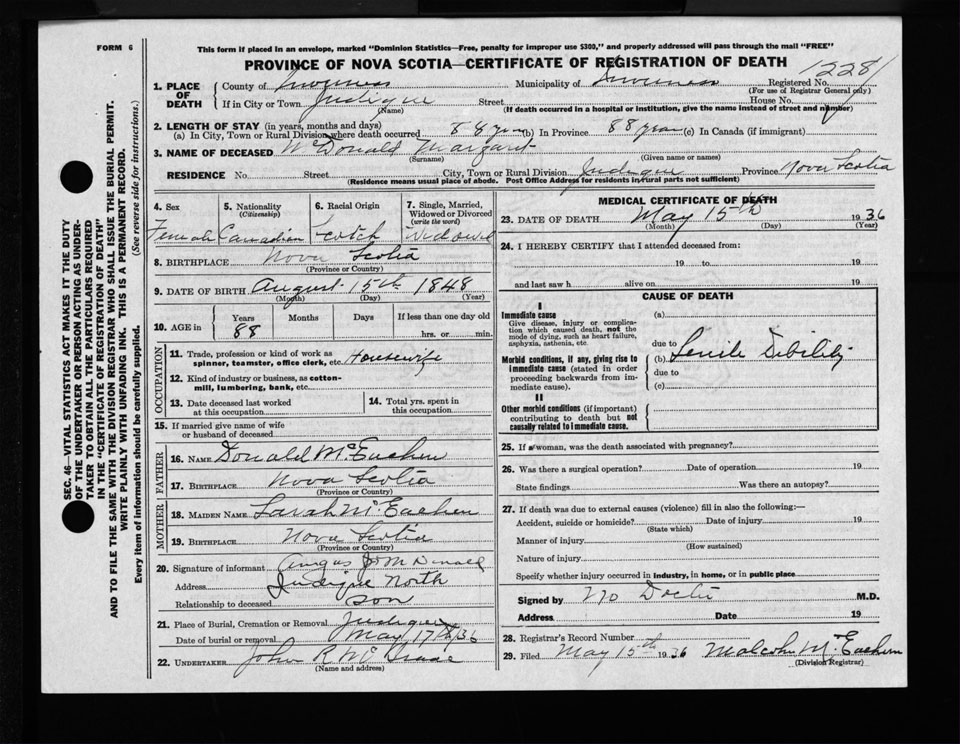 FORM 6
This form if placed in an envelope, marked "Dominion Statistics—Free, penalty for improper use $300," and properly addressed will pass through the mail "FREE"
PROVINCE OF NOVA SCOTIA—CERTIFICATE OF REGISTRATION OF DEATH
1. PLACE OF DEATH
County of Inverness Municipality of Inverness Registered No. 1228
(For use of Registrar General only)
If in City or Town Judique Street House No.
(Name) (If death occurred in a hospital or institution, give the name instead of street and number)
2. LENGTH OF STAY (in years, months and days)
(a) In City, Town or Rural Division where death occurred 88 years (b) In Province 88 years (c) In Canada (if immigrant)
3. NAME OF DECEASED McDonald Margaret
(Surname) (Given name or names)
RESIDENCE No. Street City, Town or Rural Division Judique Province Nova Scotia
(Residence means usual place of abode. Post Office Address for residents in rural parts not sufficient)
4. Sex 5. Nationality (Citizenship) 6. Racial Origin 7. Single, Married, Widowed or Divorced (write the word)
Female Canadian Scotch Widowed
8. BIRTHPLACE Nova Scotia
(Province or Country)
9. DATE OF BIRTH August 15th 1848
(Month) (Day) (Year)
10. AGE in Years Months Days If less than one day old
88 hrs. or min.
OCCUPATION
11. Trade, profession or kind of work as spinner, teamster, office clerk, etc. Housewife
12. Kind of industry or business, as cotton-mill, lumbering, bank, etc.
13. Date deceased last worked at this occupation
14. Total yrs. spent in this occupation
15. If married give name of wife or husband of deceased
FATHER
16. NAME Donald McEachen
17. BIRTHPLACE Nova Scotia
(Province or Country)
MOTHER
18. MAIDEN NAME Sarah McEachen
19. BIRTHPLACE Nova Scotia
(Province or Country)
20. Signature of informant Angus McDonald
Address Judique North
Relationship to deceased son
21. Place of Burial, Cremation or Removal Judique
Date of burial or removal May 17th/36
22. UNDERTAKER John R McIsaac
(Name and address)
MEDICAL CERTIFICATE OF DEATH
23. DATE OF DEATH May 15th 1936
(Month) (Day) (Year)
24. I HEREBY CERTIFY that I attended deceased from:
19 to 19
and last saw h alive on 19
CAUSE OF DEATH
I
Immediate cause
Give disease, injury or complication which caused death, not the mode of dying, such as heart failure, asphyxia, asthenia, etc.
(a)
due to
Morbid conditions, if any, giving rise to immediate cause (stated in order proceeding backwards from immediate cause).
(b) Senile Dibility
due to
(c)
II
Other morbid conditions (if important) contributing to death but not causally related to immediate cause.
25. If a woman, was the death associated with pregnancy?
26. Was there a surgical operation? Date of operation 19
State findings Was there an autopsy?
27. If death was due to external causes (violence) fill in also the following:—
Accident, suicide or homicide? Date of injury 19
(State which)
Manner of injury
(How sustained)
Nature of injury
Specify whether injury occurred in industry, in home, or in public place
Signed by No Doctor M.D.
Address Date 19
28. Registrar's Record Number
29. Filed May 15th 1936 Malcolm McEachern
(Division Registrar)
SEC. 46—VITAL STATISTICS ACT MAKES IT THE DUTY
OF THE UNDERTAKER OR PERSON ACTING AS UNDER-
TAKER TO OBTAIN ALL THE PARTICULARS REQUIRED
IN THE "CERTIFICATE OF REGISTRATION OF DEATH"
AND TO FILE THE SAME WITH THE DIVISION REGISTRAR WHO SHALL ISSUE THE BURIAL PERMIT.
WRITE PLAINLY WITH UNFADING INK. THIS IS A PERMANENT RECORD.
Every item of information should be carefully supplied. (See reverse side for instructions.)